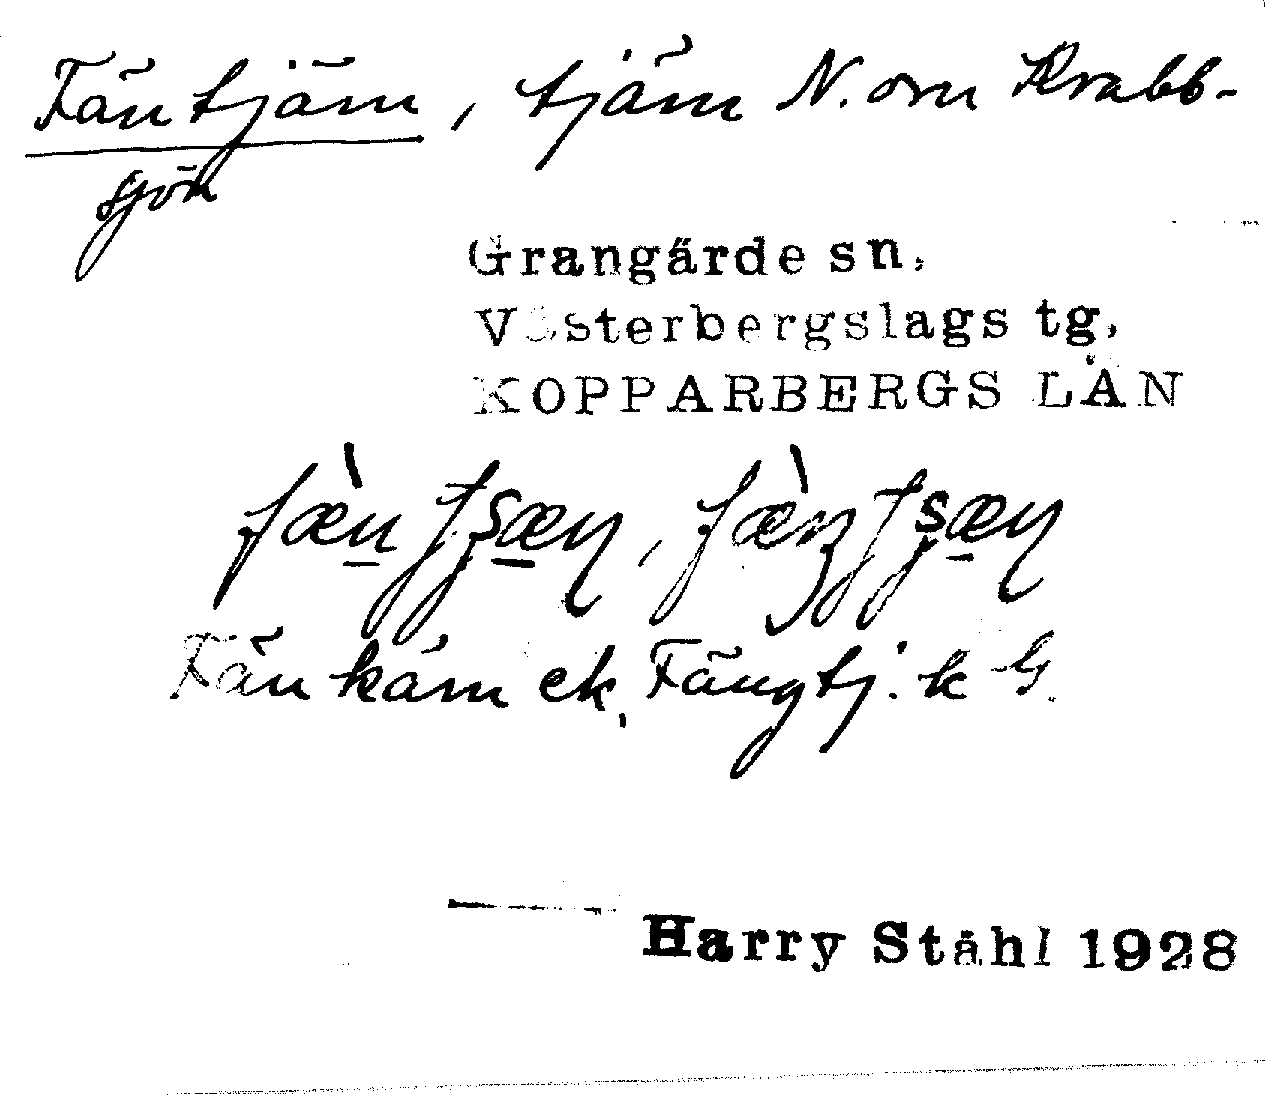 Fäntjäm, tjäm N. om Krabb-
sjön
Grangärde sn,
Västerbergslags tg,
KOPPARBERGS LÄN
Fänkäm ek, Fängtj. k G.
Harry Ståhl 1928